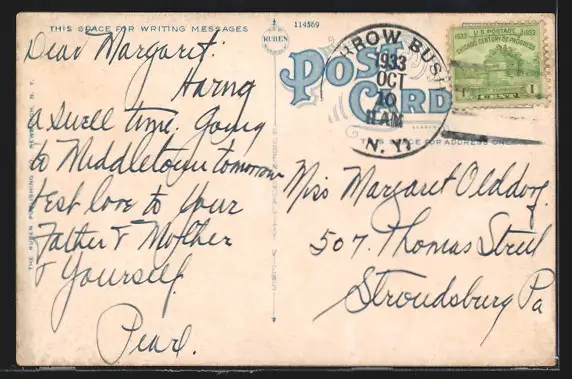 THIS SPACE FOR WRITING MESSAGES
114569
Dear Margaret:
Having
a swell time. Going
to Middletown tomorrow
Best love to your
Father & Mother
& Yourself.
Pearl.
THE RUBEN PUBLISHING CO., NEWBURGH, N. Y.
RUBEN
POST
CARD
THIS SPACE FOR ADDRESS ONLY
ROW BUSH
1933
OCT
10
11 AM
N.Y.
1833 U.S. POSTAGE 1933
CHICAGO CENTURY OF PROGRESS
1 CENT 1
Miss Margaret Olddorf.
507. Thomas Street
Stroudsburg Pa